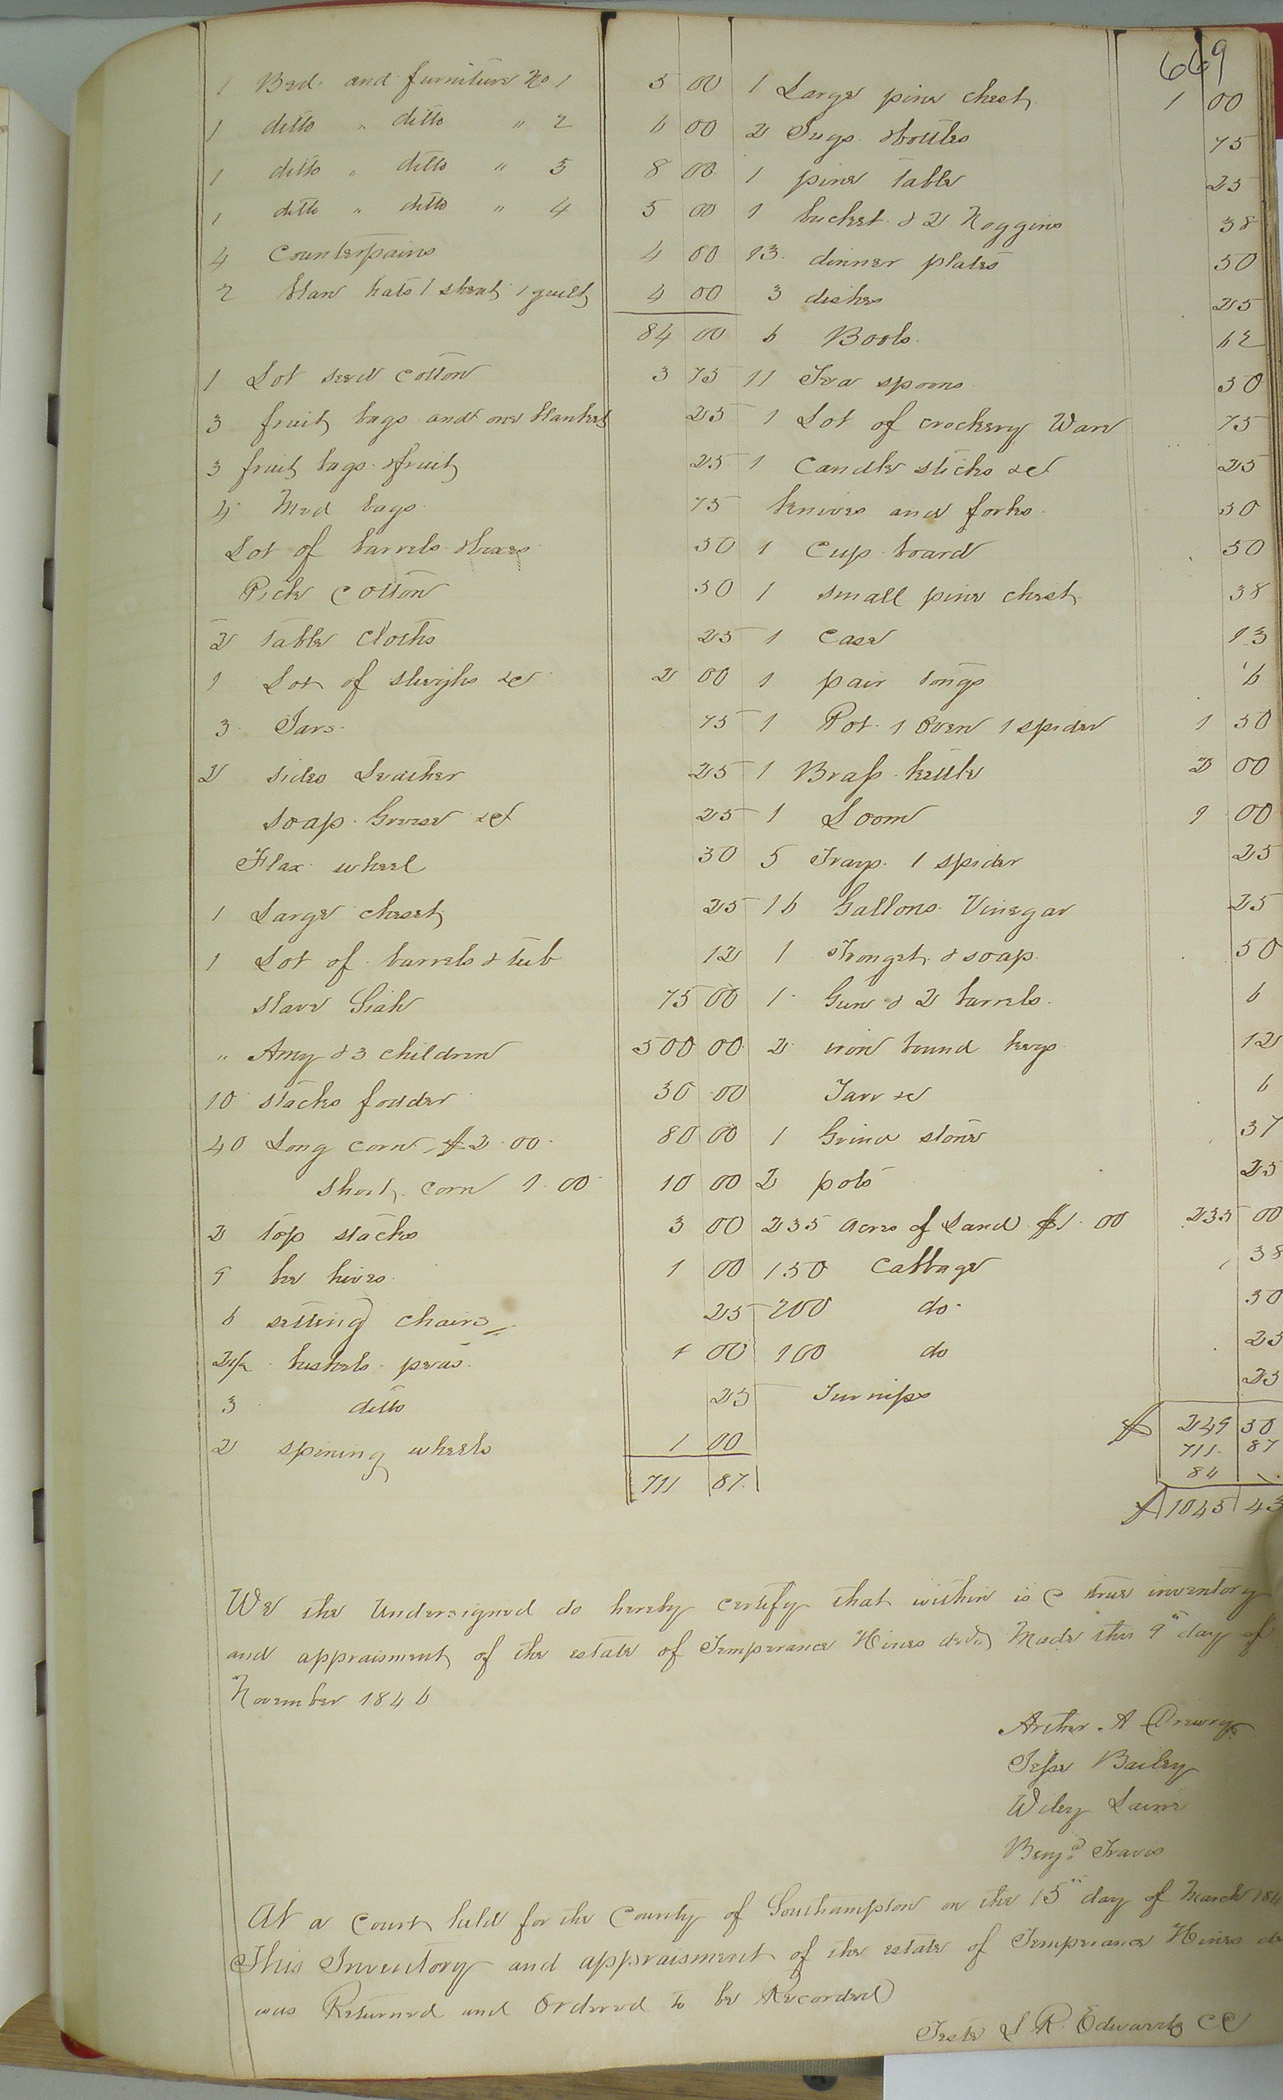 669
1 Bed and furniture No 1 5 00
1 ditto " ditto " 2 6 00
1 ditto " ditto " 3 8 00
1 ditto " ditto " 4 5 00
4 Counterpains 4 00
2 hats 1 sheet 1 quilt 4 00
84 00
1 Lot seed cotton 3 75
3 fruit bags and one blanket 25
3 fruit bags & fruit 25
4 Meal bags 75
Lot of barrels & 50
Pick Cotton 50
2 table cloths 25
1 Lot of sleighs &c 2 00
3 Jars 75
2 sides Leather 25
Soap Grease &c 25
Flax wheel 50
1 Large chest 25
1 Lot of barrels & tub 12
slave 75 00
" Amy & 3 children 500 00
10 stacks fodder 30 00
40 Long corn $2.00 80 00
Short corn 1.00 10 00
2 top stacks 3 00
9 bee hives 1 00
6 setting chairs 25
2½ bushels peas 1 00
3 ditto 25
2 spining wheels 1 00
711 87
1 Large pine chest 1 00
2 Jugs & bottles 75
1 pine table 25
1 bucket & 2 Noggins 38
13 dinner plates 50
3 dishes 25
6 Books 62
11 Tea spoons 50
1 Lot of crockery Ware 75
1 Candle sticks &c 25
knives and forks 50
1 Cup board 50
1 small pine chest 38
1 Case 13
1 pair tongs 6
1 Pot 1 Oven 1 spider 1 50
1 Brass kettle 2 00
1 Loom 1 00
5 Trays 1 spider 25
16 Gallons Vinegar 25
1 & soap 50
1 Gum & 2 barrels 6
2 iron bound kegs 12
Tarr &c 6
1 Grind stone 37
2 pots 25
235 acres of Land $1.00 235 00
150 Cabbage 38
200 do 50
100 do 25
Turnips 25
$ 249 50
711 87
84
$ 1045 43
We the Undersigned do hereby certify that within is a true inventory
and appraisment of the estate of Temperance Hines decd Made this 9th day of
November 1846
Arther A Drewry
Jesse Bailey
Wiley Laine
Benj. Travis
At a Court held for the County of Southampton on the 15th day of March 184
This Inventory and appraisment of the estate of Temperance Hines de
was Returned and Ordered to be Recorded
Teste L R Edwards CC